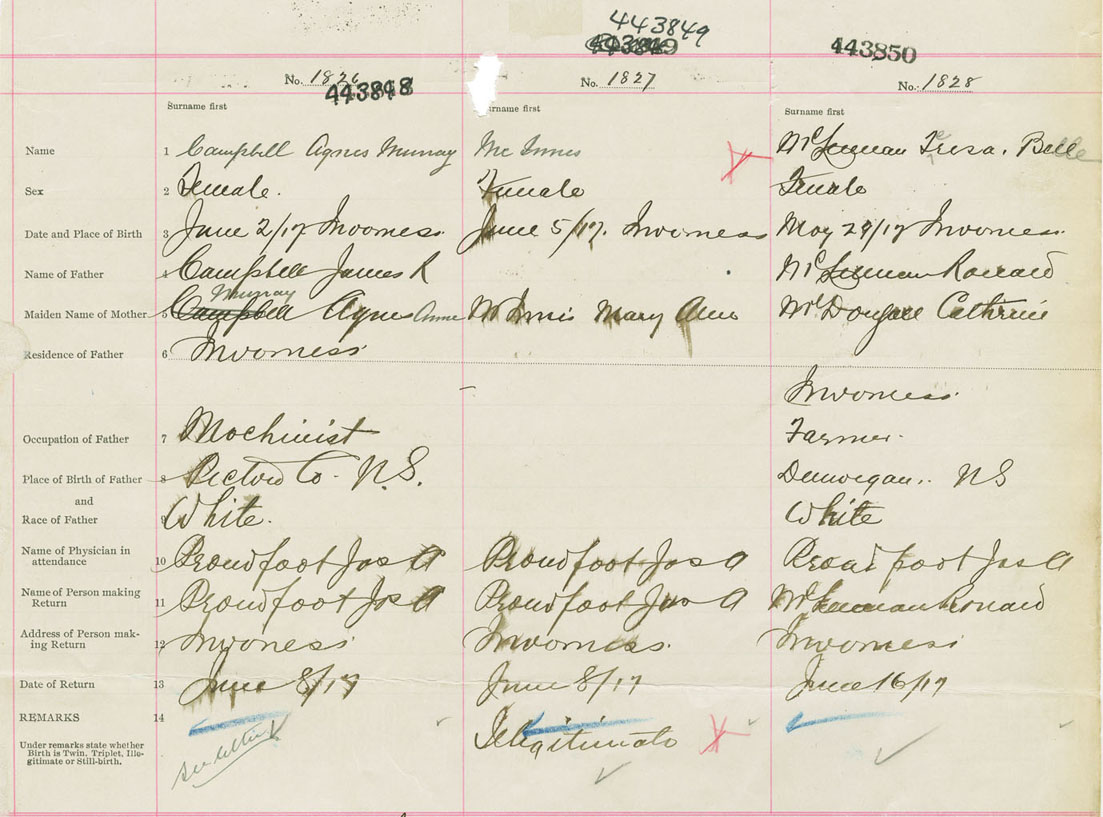 443849
443850
No. 1826 No. 1827 No. 1828
443848
Surname first Surname first Surname first
Name 1 Campbell Agnes Murray Mc Innes Belle
Sex 2 Female. Female Female
Date and Place of Birth 3 June 2/17 Inverness. June 5/17. Inverness May 29/17 Inverness.
Name of Father 4 Campbell James R Ronald
Murray
Maiden Name of Mother 5 Campbell Agnes Anne McInnis Mary Ann McDougall Catherine
Residence of Father 6 Inverness
Inverness.
Occupation of Father 7 Machinist Farmer.
Place of Birth of Father 8 Pictou Co. N.S. Dunvegan. NS
and
Race of Father 9 White. White
Name of Physician in
attendance 10 Proudfoot Jas A Proudfoot Jas A Proudfoot Jas A
Name of Person making
Return 11 Proudfoot Jas A Proudfoot Jas A Ronald
Address of Person mak-
ing Return 12 Inverness Inverness. Inverness
Date of Return 13 June 8/17 June 8/17 June 16/17
REMARKS 14
Illegitimate
Under remarks state whether
Birth is Twin, Triplet, Ille-
gitimate or Still-birth.
see letter